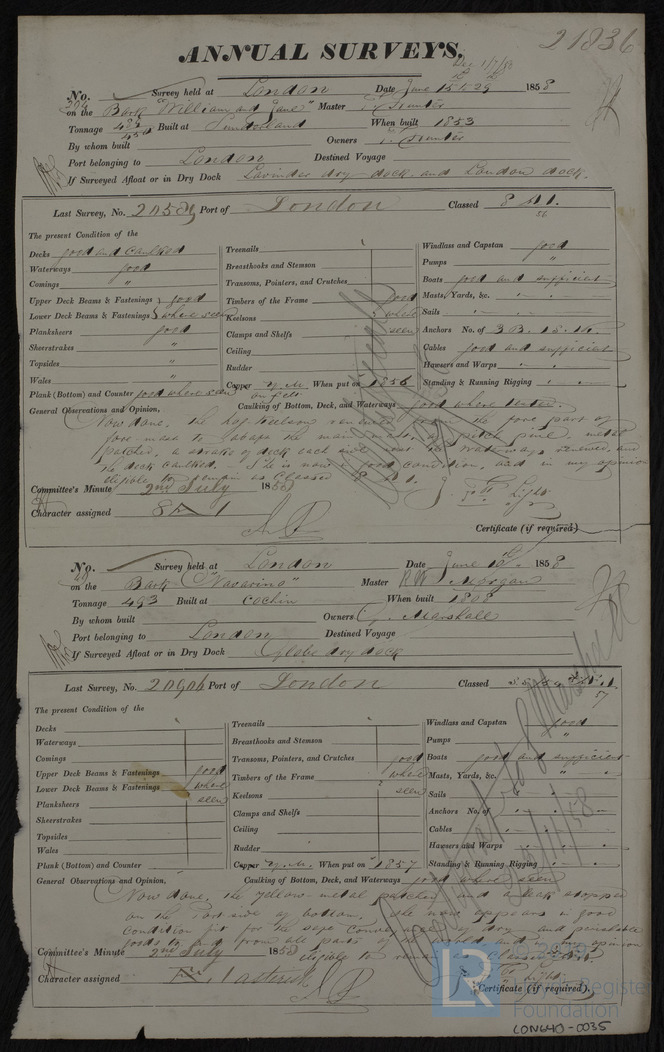 21836
ANNUAL SURVEYS.
No. Survey held at London Date June 15 & 29 1858
on the Bark "William and Jane" Master Hunter
Tonnage Built at Sunderland When built 1853
By whom built Owners T. Hunter
Port belonging to London Destined Voyage
If Surveyed Afloat or in Dry Dock Lavinder dry dock and London dock.
Last Survey, No. Port of London Classed 8 A 1.
The present Condition of the
Decks good and caulked
Waterways good
Comings "
Upper Deck Beams & Fastenings good
Lower Deck Beams & Fastenings where seen
Planksheers good
Sheerstrakes "
Topsides "
Wales "
Plank (Bottom) and Counter good where seen
Treenails
Breasthooks and Stemson
Transoms, Pointers, and Crutches
Timbers of the Frame good
Keelsons where
Clamps and Shelfs seen
Ceiling
Rudder
Copper Y.M. When put on 1856
on felt
Windlass and Capstan good
Pumps "
Boats good and sufficient
Masts, Yards, &c. " "
Sails " "
Anchors No. of 3 B. 1 S. 1 K.
Cables good and sufficient
Hawsers and Warps " "
Standing & Running Rigging " "
General Observations and Opinion, Caulking of Bottom, Deck, and Waterways good where tested.
Now done, the keelson renewed from the fore part of
fore mast to abaft the main mast of pitch pine, metal
patched, a strake of deck each side next the waterways renewed, and
the deck caulked. She is now in good condition, and in my opinion
eligible to remain as Classed 8 A 1.
Committee's Minute 2nd July 1858
J. Light
Character assigned 8 A 1
Certificate (if required)
No. Survey held at London Date June 1858
on the Bark "Navarino" Master Morgan
Tonnage 493 Built at Cochin When built 1808
By whom built Owners J. Marshall
Port belonging to London Destined Voyage
If Surveyed Afloat or in Dry Dock Globe dry dock
Last Survey, No. 20906 Port of London Classed
57
The present Condition of the
Decks
Waterways
Comings
Upper Deck Beams & Fastenings good
Lower Deck Beams & Fastenings where
Planksheers seen
Sheerstrakes
Topsides
Wales
Plank (Bottom) and Counter
Treenails
Breasthooks and Stemson
Transoms, Pointers, and Crutches good
Timbers of the Frame where
Keelsons seen
Clamps and Shelfs
Ceiling
Rudder
Copper Y.M. When put on 1857
Windlass and Capstan good
Pumps "
Boats good and sufficient
Masts, Yards, &c. " "
Sails " "
Anchors No. of " "
Cables " "
Hawsers and Warps " "
Standing & Running Rigging " "
General Observations and Opinion, Caulking of Bottom, Deck, and Waterways good where seen
Now done, the yellow metal patched and a leak stopped
on the Port side of bottom. She now appears in good
condition fit for the safe conveyance of dry and perishable
goods to and from all parts of the world and in my opinion
eligible to remain as Classed
Committee's Minute 2nd July 1858
Character assigned Æ 1 asterisk
Certificate (if required).
LR
© 2019
Lloyd's Register
Foundation
LON640-0035